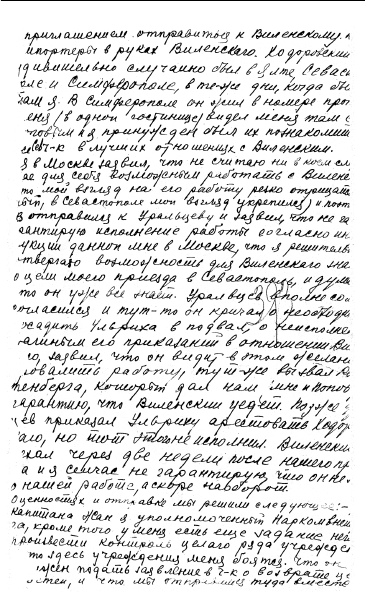 приглашением отправиться к Виленскому.
портерот в руках Виленскаго. Ходоровский
удивительно случайно был в Ялте Севас
оле и Симферополе, в те-же дни, когда был
там я. В Симферополе он жил в номере про
меня /в одной гостинице/ видел меня там с
и я принужден был их познакомить
в лучших отношениях с Виленским.
я в Москве заявил, что не считаю ни в коем сл
ае для себя возможным работать с Вилен
то мой взгляд на его работу резко отрицат
ный, в Севастополе мой взгляд укрепился/ и поэт
отправился к Уральцеву и заявил, что не га
рантирую исполнение работы согласно ин
укции данной мне в Москве, что я решитель
отвергаю возможность для Виленского зна
о цели моего приезда в Севастополь, и дума
то он уже все знает. Уральцев вполне со
огласился и тут-то он кричал о необходи
сжадить Ульриха в подвал, о неисполне
его приказаний в отношении Ви
го, заявил, что он видит в этом желан
овалить работу, тут-же вызвал
тенберга, который дал нам /мне и
гарантию, что Виленский уедет. Позже
ев приказал Ульриху арестовать Ходор
го, но тот этого не исполнил. Виленски
хал через две недели после нашего пр
а и я сейчас не гарантирую, что он не
о нашей работе, а скорее наоборот.
О ценностях и отправке мы решили следующее:-
капитана Жан я уполномоченный Наркомвне
га, кроме того у меня есть еще задание не
произвести контроль целого ряда учрежде
то здесь учреждения меня боятся. Что он
должен подать заявление в ч-ко о возврате це
остей, и что мы отправимся туда вместе